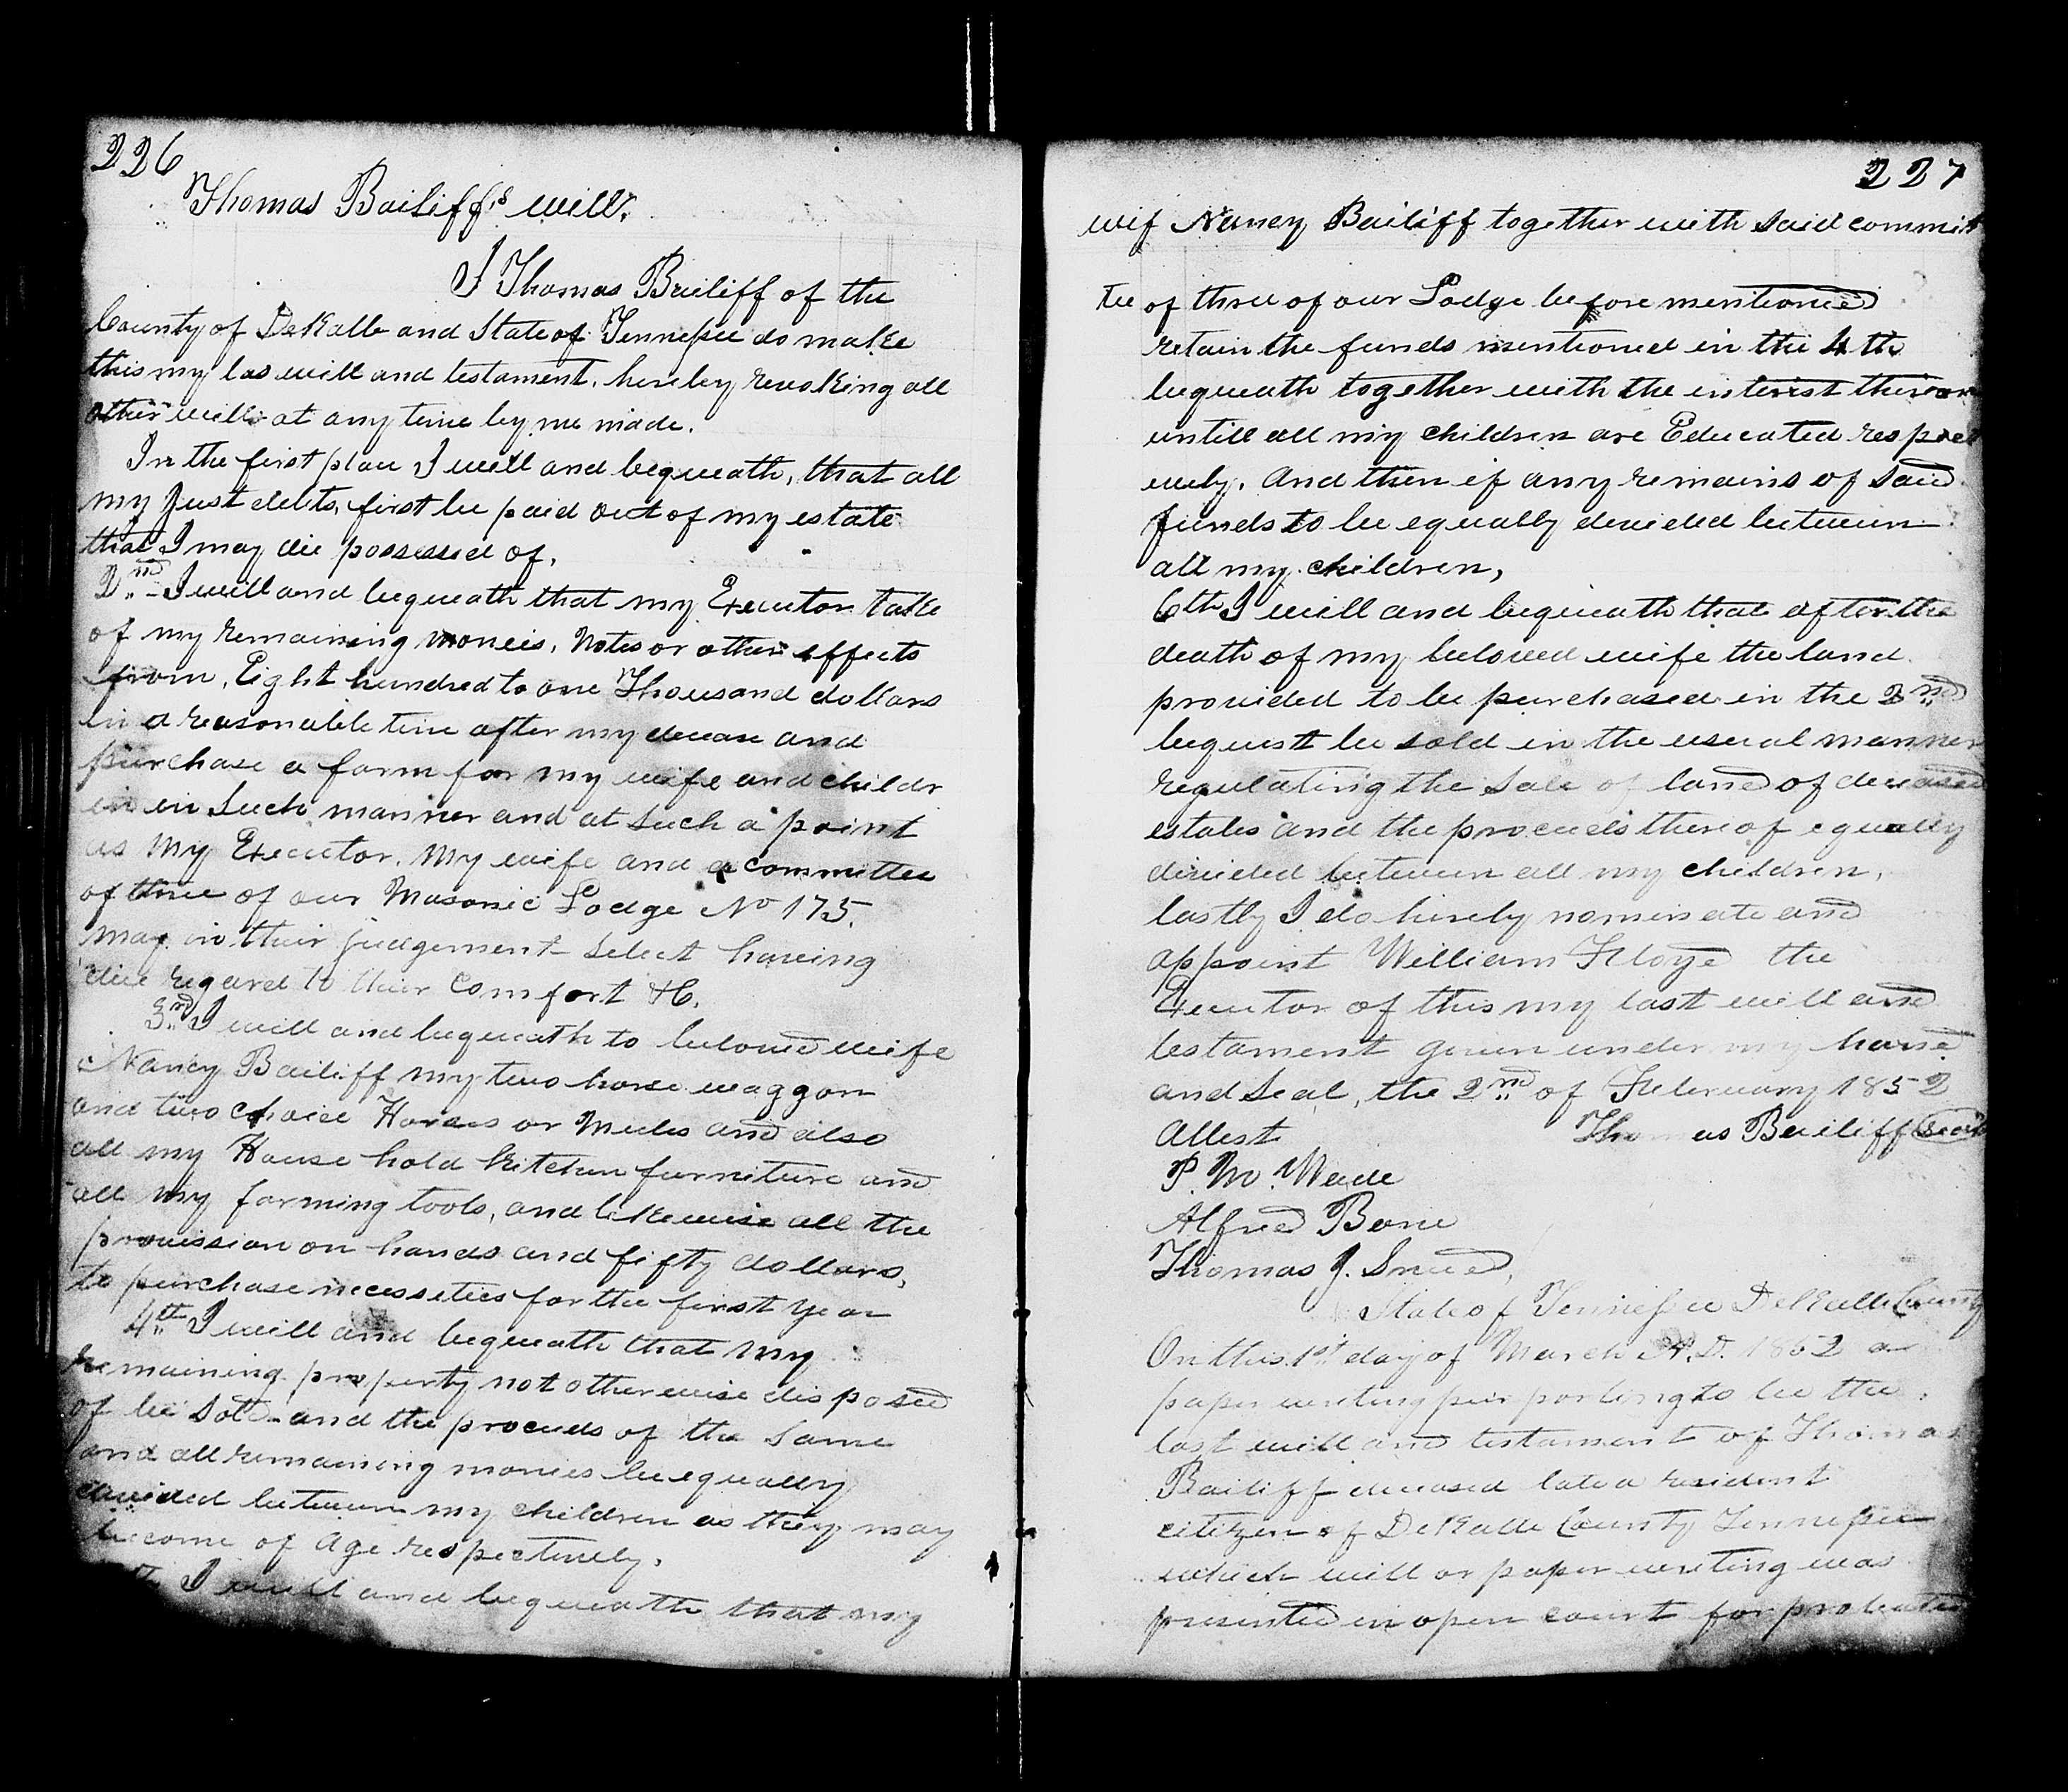 226
Thomas Bailiff's will.
I Thomas Bailiff of the
County of DeKalb and State of Tennessee do make
this my las will and testament, hereby revoking all
other wills at any time by me made.
In the first place I will and bequeath, that all
my just debts, first be paid out of my estate
that I may die possessed of.
2nd I will and bequeath that my Executor take
of my remaining monies, Notes or other effects
from, Eight hundred to one Thousand dollars
in a reasonable time after my decease and
purchase a farm for my wife and childr
en in such manner and at such a point
as my Executor, my wife and a committee
of three of our Masonic Lodge No 175.
may in their judgement select having
due regard to their comfort &C.
3rd I will and bequeath to beloved wife
Nancy Bailiff my two horse waggon
and two choice Horses or Mules and also
all my House hold kitchen furniture and
all my farming tools, and likewise all the
provission on hands and fifty dollars,
to purchase necesseties for the first year
4th I will and bequeath that my
remaining property not otherwise disposed
of be sold and the proceeds of the same
and all remaining monies be equally
devided between my children as they may
become of Age respectively.
I will and bequeath that my
227
wif Nancy Bailiff together with said commit
tee of three of our Lodge before mentioned
retain the funds mentioned in the 4th
bequeath together with the interist thereon
untill all my children are Educated respect
ively. And then if any remains of said
funds to be equally devided between
all my children,
6th I will and bequeath that after the
death of my beloved wife the land
provided to be purchased in the 2nd
bequest be sold in the usual manner
regulating the sale of land of deceased
estates and the proceeds thereof equally
divided between all my children,
lastly I do hereby nominate and
appoint William Floyd the
Executor of this my last will and
testament given under my hand
and seal, the 2nd of February 1852
Attest Thomas Bailiff (seal)
P. M. Wade
Alfred Bone
Thomas J. Sneed,
State of Tennessee DeKalb County
On this 1st day of March A.D. 1852 a
paper writing purporting to be the
last will and testament of Thomas
Bailiff deceased late a resident
citizen of DeKalb County Tennessee
which will or paper writing was
presented in open court for probate